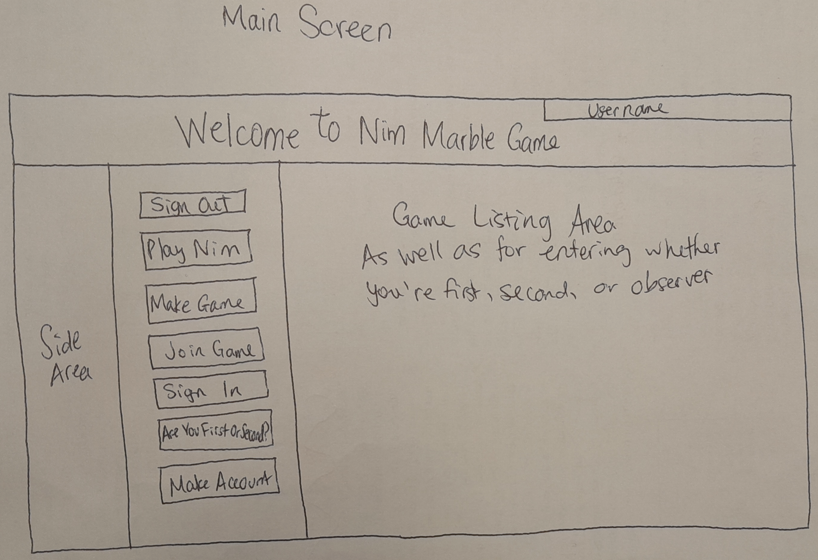 Main Screen
Username
Welcome to Nim Marble Game
Sign Out
Play Nim
Make Game
Join Game
Sign In
Are You First Or Second?
Make Account
Side
Area
Game Listing Area
As well as for entering whether
you're first, second, or observer